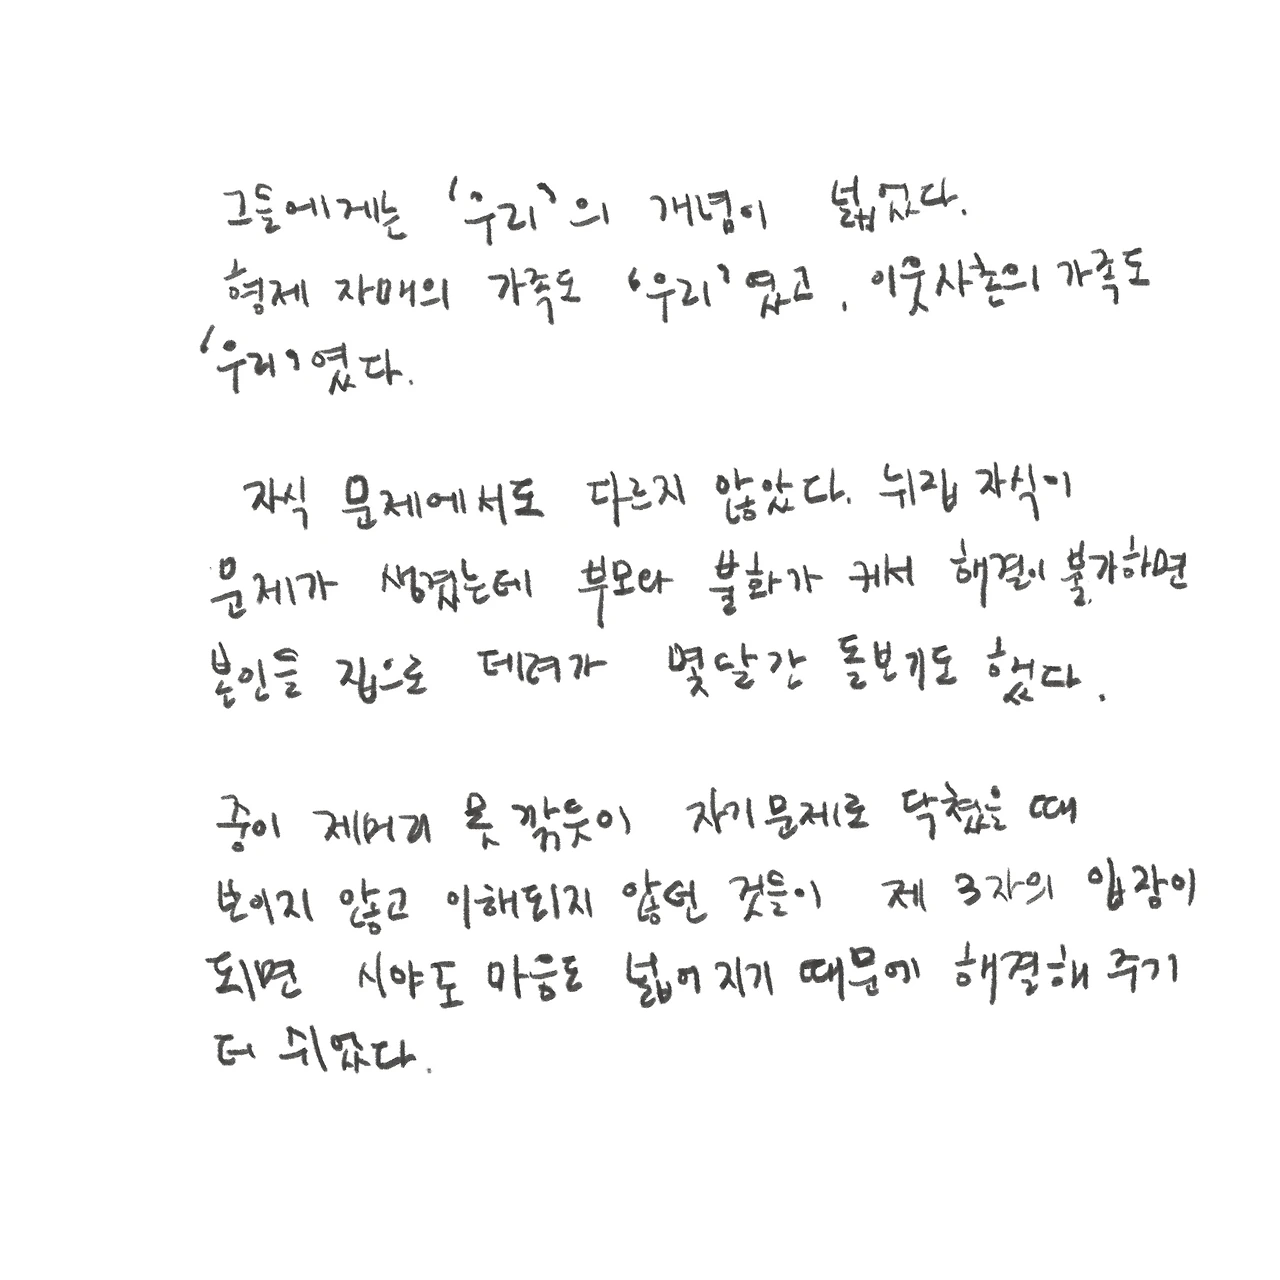 그들에게는 '우리'의 개념이 넓었다.
형제 자매의 가족도 '우리'였고, 이웃사촌의 가족도
'우리'였다.
자식 문제에서도 다르지 않았다. 뉘집 자식이
문제가 생겼는데 부모와 불화가 커서 해결이 불가하면
본인들 집으로 데려가 몇달간 돌보기도 했다.
중이 제머리 못 깎듯이 자기문제로 닥쳤을 때
보이지 않고 이해되지 않던 것들이 제 3자의 입장이
되면 시야도 마음도 넓어지기 때문에 해결해 주기
더 쉬웠다.